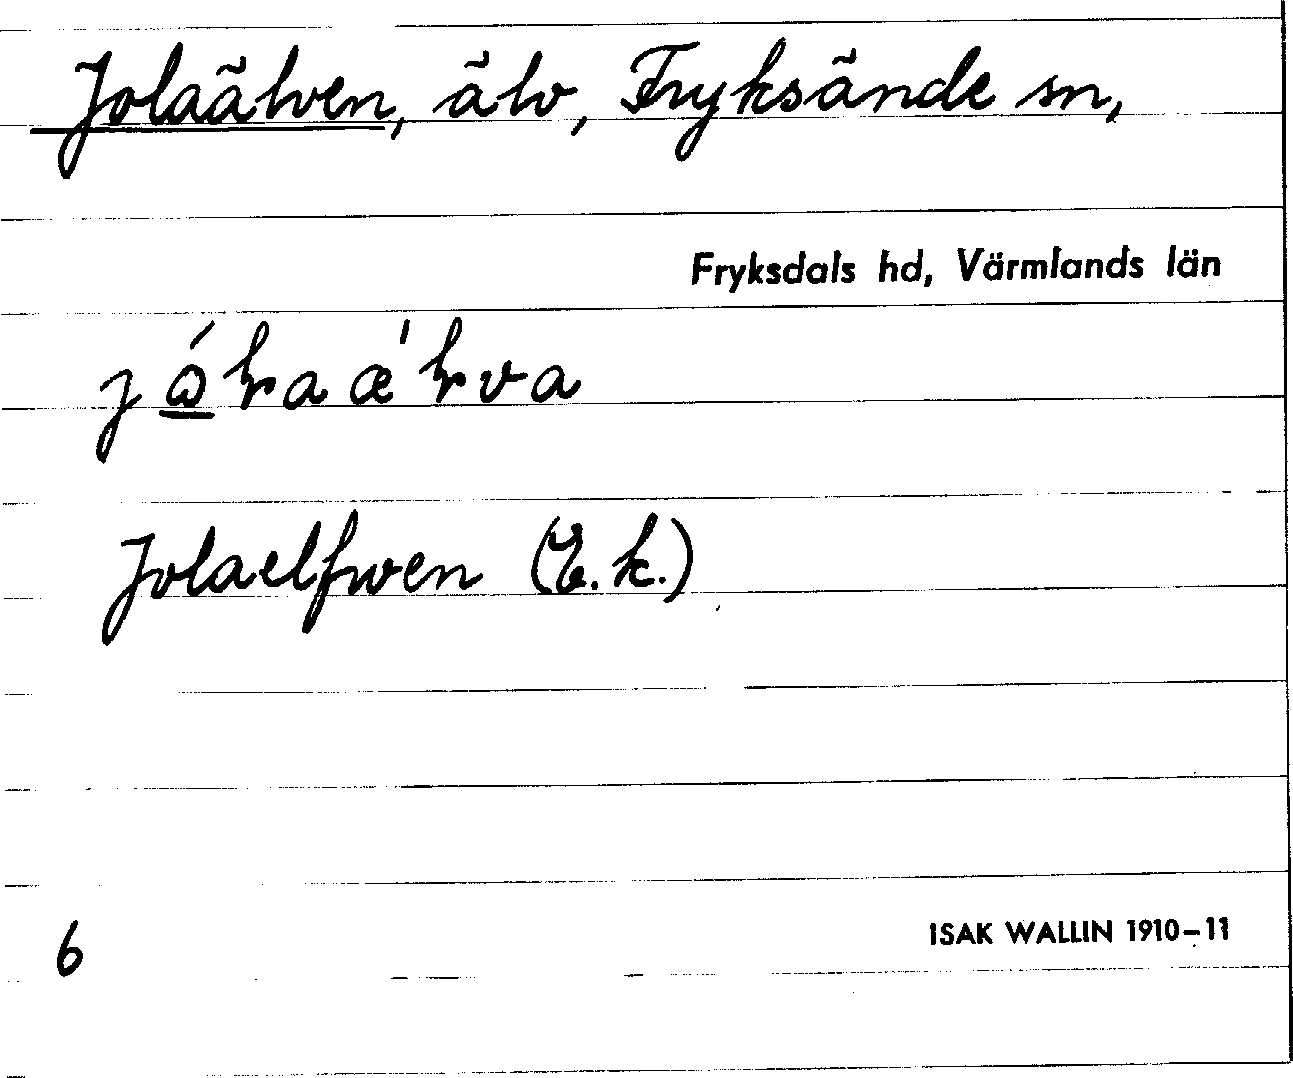 Jolaälven, älv, Fryksände sn,
Fryksdals hd, Värmlands län
Jolaelfwen (E.k.)
6
ISAK WALLIN 1910–11